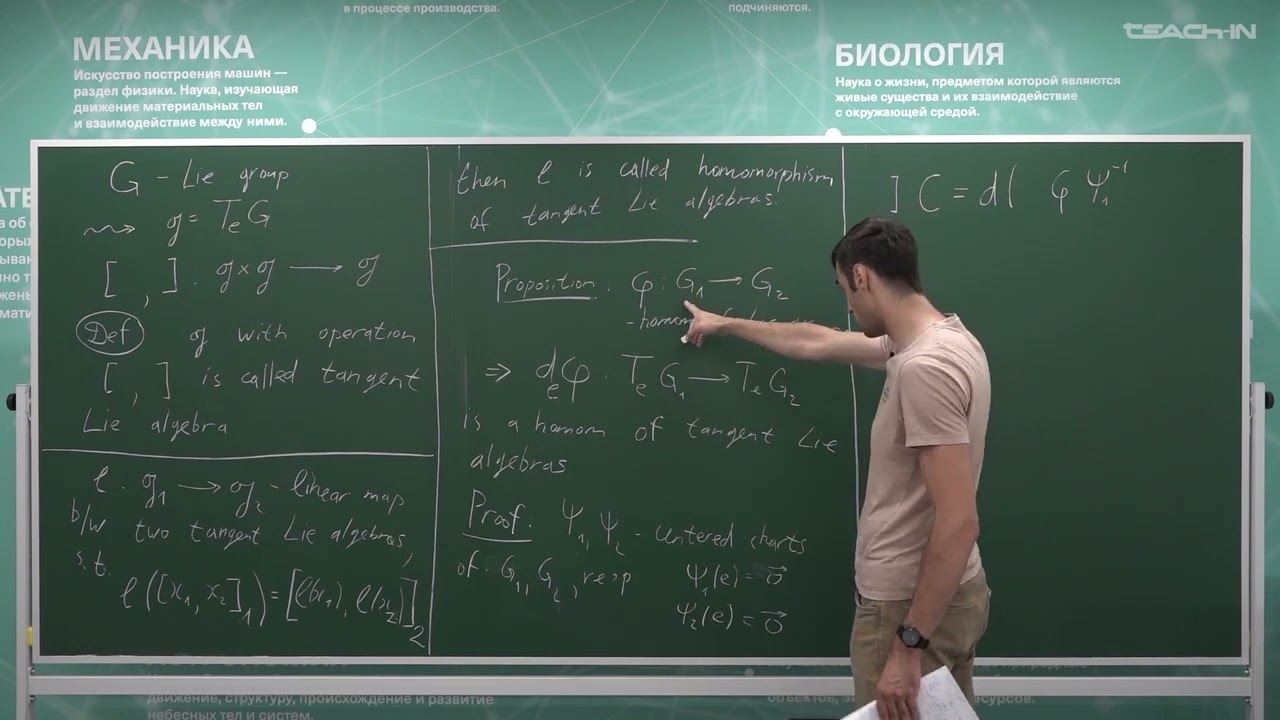 в процессе производства.
подчиняются.
TEACH-IN
МЕХАНИКА
Искусство построения машин —
раздел физики. Наука, изучающая
движение материальных тел
и взаимодействие между ними.
БИОЛОГИЯ
Наука о жизни, предметом которой являются
живые существа и их взаимодействие
с окружающей средой.
G - Lie group
⇝ 𝔤 = TₑG
[ , ] : 𝔤 × 𝔤 → 𝔤
Def 𝔤 with operation
[ , ] is called tangent
Lie algebra
ℓ : 𝔤₁ → 𝔤₂ - linear map
b/w two tangent Lie algebras,
s.t.
ℓ([x₁, x₂]₁) = [ℓ(x₁), ℓ(x₂)]₂
then ℓ is called homomorphism
of tangent Lie algebras.
Proposition : φ : G₁ → G₂
- homom
⇒ dₑφ : TₑG₁ → TₑG₂
is a homom of tangent Lie
algebras
Proof: Ψ₁, Ψ₂ - centered charts
of G₁, G₂, resp. Ψ₁(e) = 0⃗
Ψ₂(e) = 0⃗
] C = d( φ Ψ₁⁻¹
движение, структуру, происхождение и развитие
небесных тел и систем.